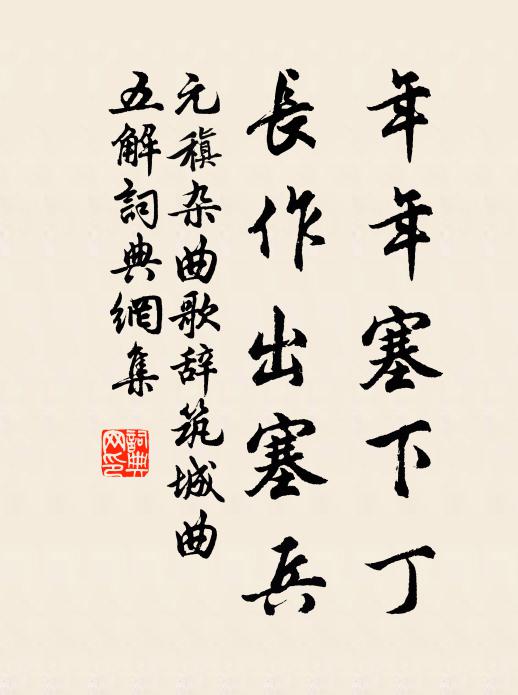 年年塞下丁
長作出塞兵
元稹杂曲歌辞筑城曲
五解詞典網集
詞典網印